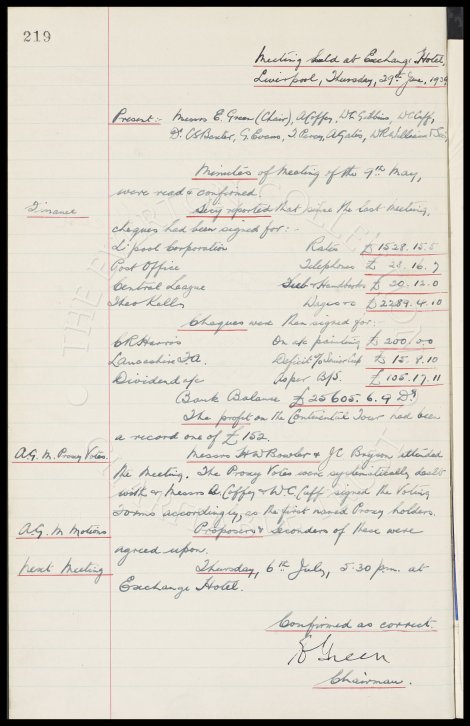 219
Meeting held at Exchange Hotel,
Liverpool, Thursday, 29th June, 1939
Present:- Messrs E. Green (Chair), A Coffey, W.C. Gibbins, W C Cuff,
Dr. C S Baxter, G. Evans, J. Percy, A Gates, W R Williams & Sec.
Minutes of Meeting of the 9th May,
were read & confirmed.
Finance
Secy reported that since the last meeting,
cheques had been signed for:-
L'pool Corporation Rates £1528.15.5
Post Office Telephones £ 23.16.7
Central League Subs & Handbooks £ 20.12.0
Theo Kelly Wages &c £2289.4.10
Cheques were then signed for:-
C R Harris On a/c painting £200/0.0
Lancashire F.A. Deficit Senior Cup £ 15.8.10
Dividend a/c As per B/S. £ 105.17.11
Bank Balance £25605.6.9 Dr
The profit on the Continental Tour had been
a record one of £152.
A.G.M. Proxy Votes.
Messrs H W Bowler & J C Bryson attended
the Meeting. The Proxy Votes were systematically dealt
with & Messrs A. Coffey & W. C. Cuff signed the Voting
Forms accordingly, as the first named Proxy holders.
A.G.M. Motions
Proposers & seconders of these were
agreed upon.
Next Meeting
Thursday, 6th July, 5.30 p.m. at
Exchange Hotel.
Confirmed as correct.
E Green
Chairman.